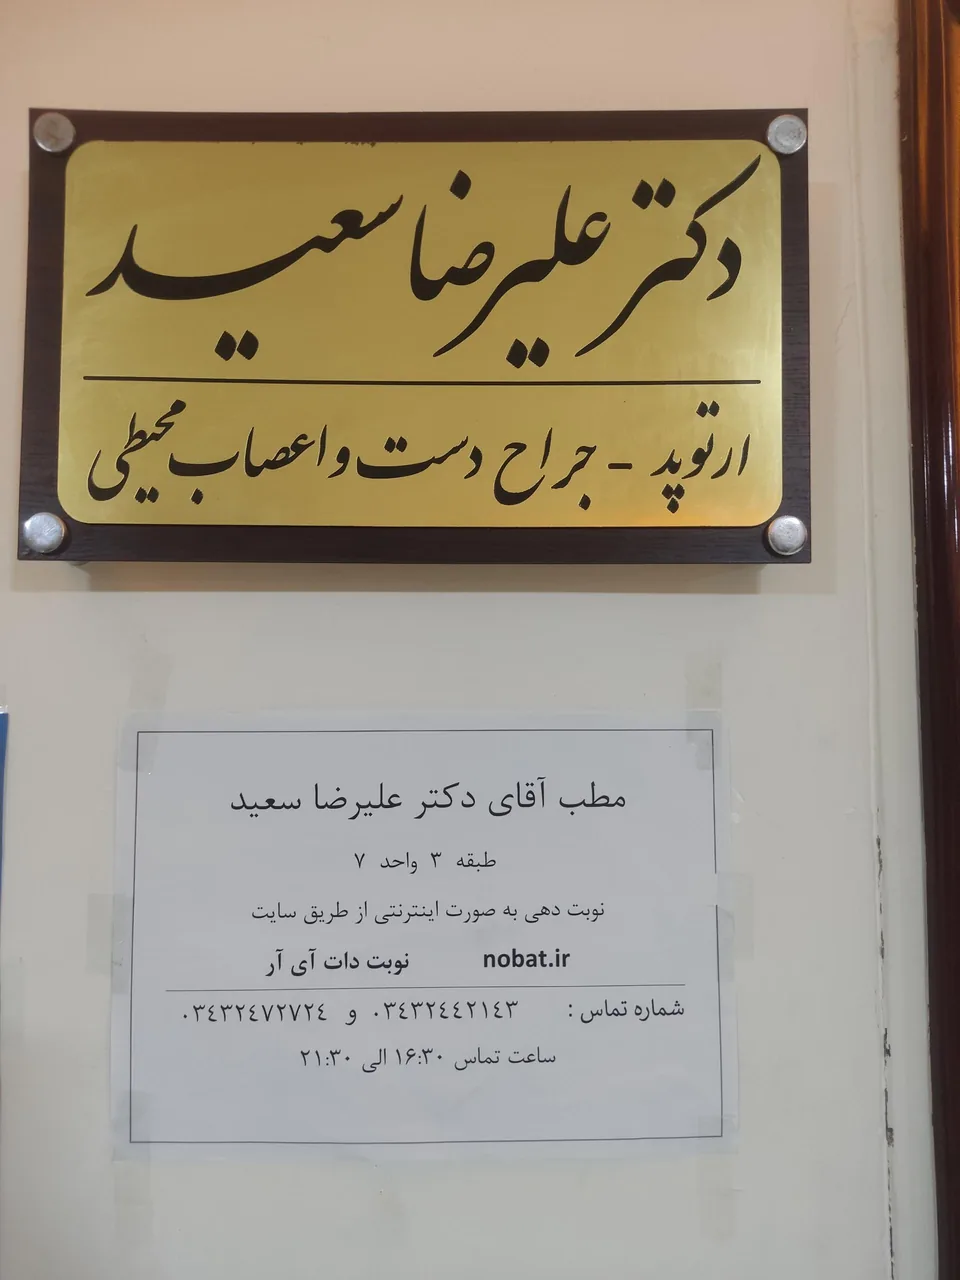 دکتر علیرضا سعید
ارتوپد - جراح دست و اعصاب محیطی
مطب آقای دکتر علیرضا سعید
طبقه ۳ واحد ۷
نوبت دهی به صورت اینترنتی از طریق سایت
nobat.ir نوبت دات آی آر
شماره تماس : ۰۳٤۳۲٤٤۲۱٤۳ و ۰۳٤۳۲٤۷۲۷۲٤
ساعت تماس ۱۶:۳۰ الی ۲۱:۳۰